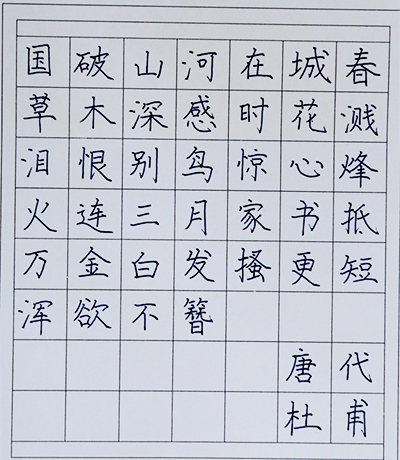 国破山河在城春
草木深感时花溅
泪恨别鸟惊心烽
火连三月家书抵
万金白发搔更短
浑欲不簪
唐代
杜甫